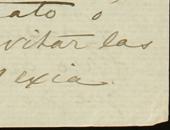 ato ó
vitar las
exia.